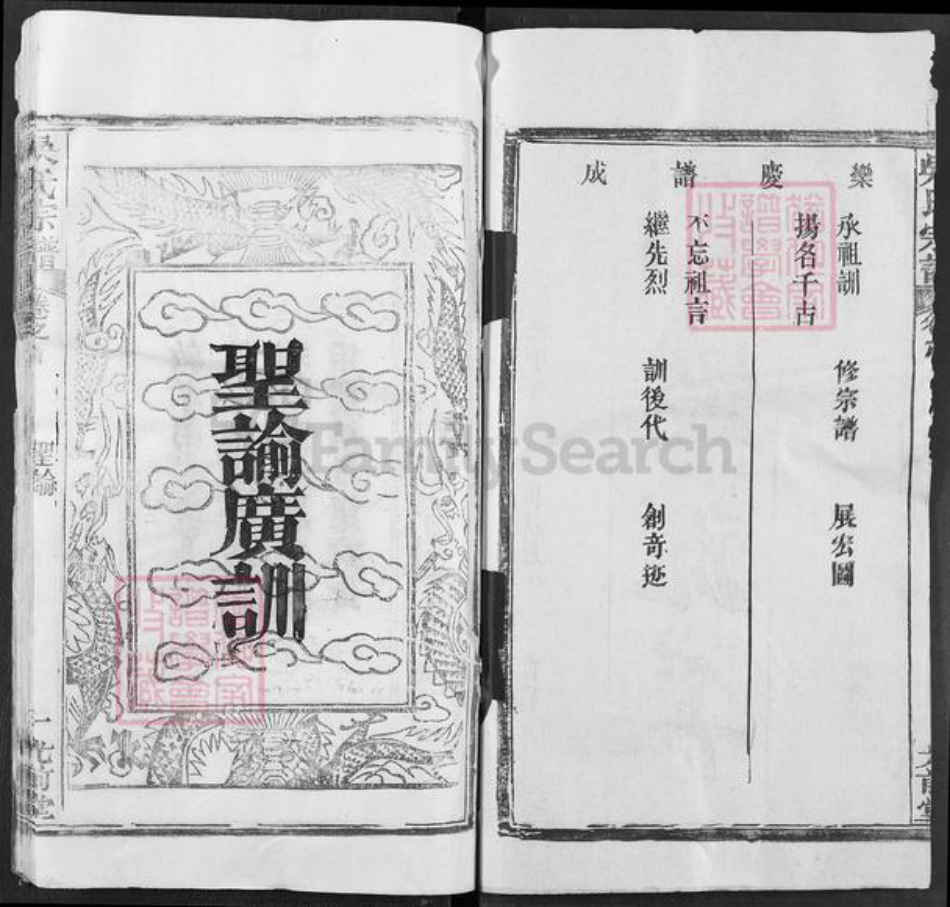 樂慶譜成
永祖訓 修宗譜 展宏圖
揚名千古
不忘祖言
繼先烈 訓後代 創奇迹
聖諭廣訓
吳氏宗譜 卷之首
聖諭
一
光前堂
FamilySearch